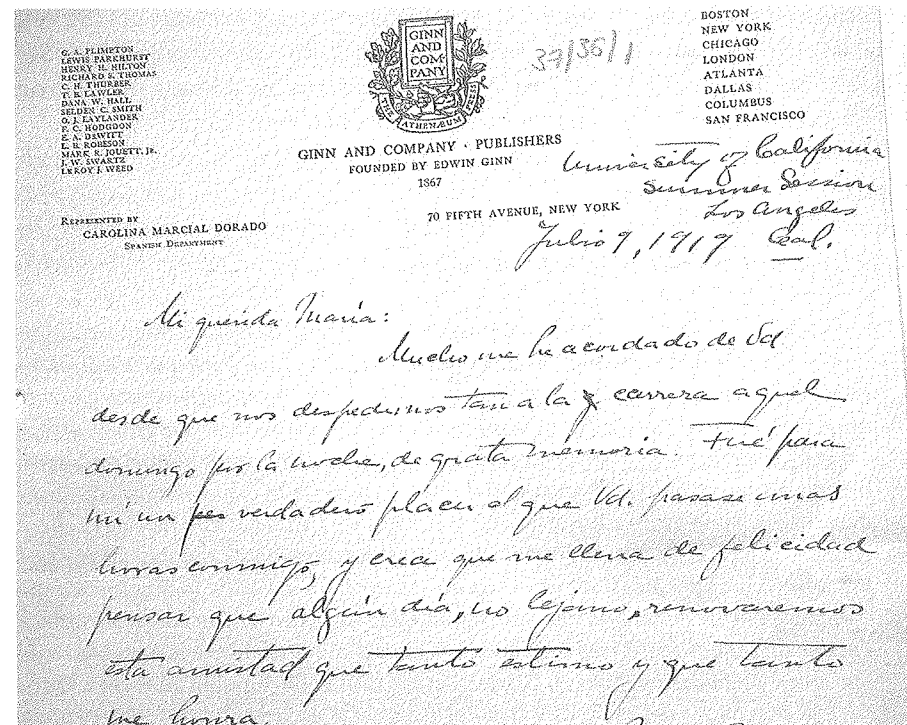 G. A. PLIMPTON
LEWIS PARKHURST
HENRY H. HILTON
RICHARD S. THOMAS
C. H. THURBER
T. B. LAWLER
DANA W. HALL
SELDEN C. SMITH
O. J. LAYLANDER
F. C. HODGDON
E. A. DEWITT
L. B. ROBESON
MARK R. JOUETT, JR.
J. W. SWARTZ
LEROY J. WEED
REPRESENTED BY
CAROLINA MARCIAL DORADO
SPANISH DEPARTMENT
GINN
AND
COM-
PANY
THE ATHENÆUM PRESS
GINN AND COMPANY · PUBLISHERS
FOUNDED BY EDWIN GINN
1867
70 FIFTH AVENUE, NEW YORK
37/36/1
BOSTON
NEW YORK
CHICAGO
LONDON
ATLANTA
DALLAS
COLUMBUS
SAN FRANCISCO
University of California
Summer Session
Los Angeles
Julio 9, 1919 Cal.
Mi querida María:
Mucho me he acordado de Vd
desde que nos despedimos tan a la carrera aquel
domingo por la noche, de grata memoria. Fué para
mi un verdadero placer el que Vd. pasase unas
horas conmigo, y crea que me llena de felicidad
pensar que algún día, no lejano, renovaremos
esta amistad que tanto estimo y que tanto
me honra.